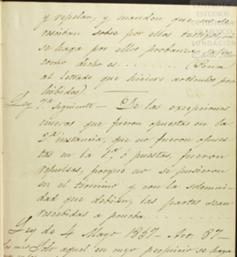 y repelan, y manden que no se
resciban sobre por ellos testigos, ni
se haga por ellos probanza
como dicho es ..... (Pena
al Letrado que hiciere artículos pro
hibidos)
Ley 7.ª siguiente - De las excepciones
nuevas que fueron opuestas en la
2.ª instancia, que no fueron opues
tas en la 1.ª ó puestas, fueron
repulsas, porque no se pusieron
en el termino y con la solemni
dad que debian, las partes sean
rescebidas a prueba.
Ley de 4 Mayo 1857 - Art. 87 -
Solo aquel en cuyo perjuicio se haya